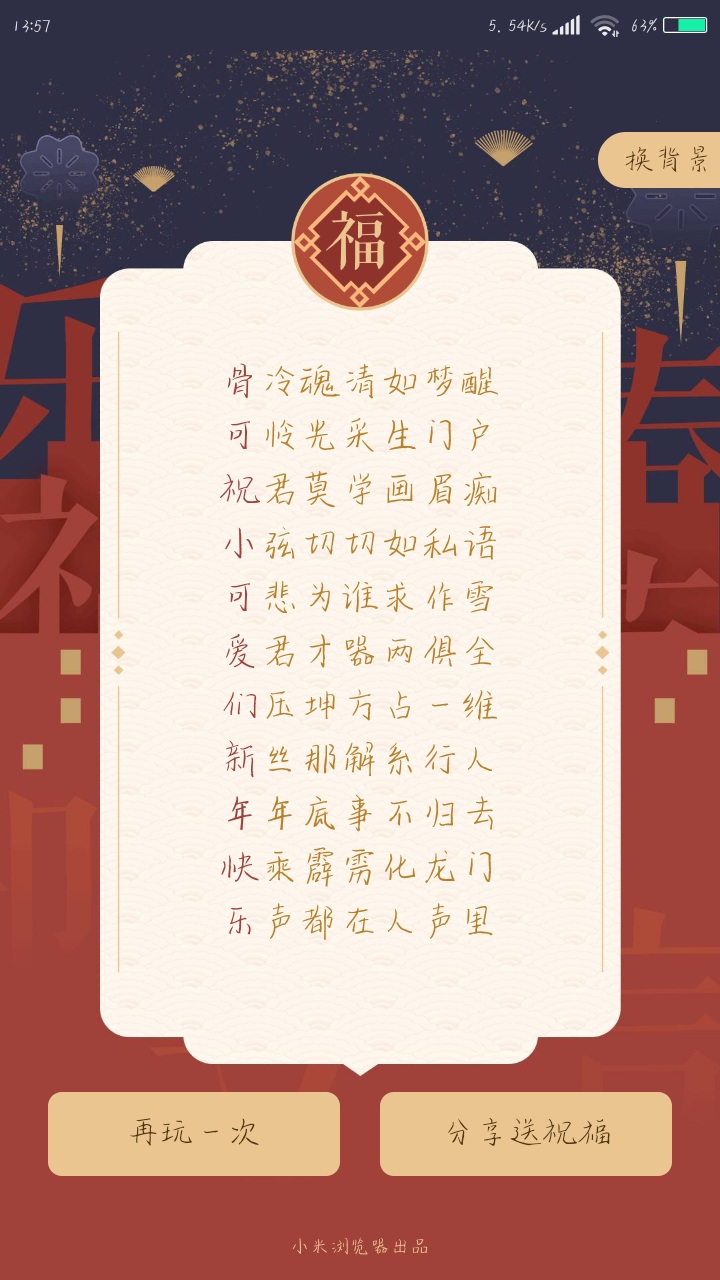 13:57
5.54K/s
63%
换背景
福
骨冷魂清如梦醒
可怜光采生门户
祝君莫学画眉痴
小弦切切如私语
可悲为谁求作雪
爱君才器两俱全
们压坤方占一维
新丝那解系行人
年年底事不归去
快乘霹雳化龙门
乐声都在人声里
再玩一次
分享送祝福
小米浏览器出品